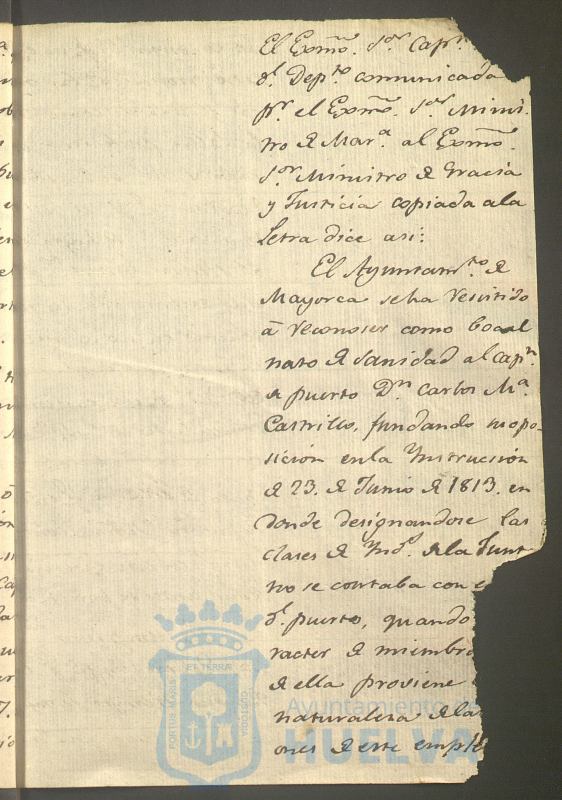 El Exmõ. Sor Capn.
dl. Depto comunicada
pr. el Exmõ. Sor Minis-
tro de Mara. al Exmõ.
Sor Ministro de Gracia
y Justicia copiada ala
Letra dice asi:
El Ayuntamto de
Mayorca seha resistido
à reconoser como Bocal
nato de Sanidad al Capn.
de puerto Dn Carlos Ma.
Castrillo, fundando su opo
sicion enla Ynstruccion
de 23. de Junio de 1813. en
donde designandose las
clases de Ynds. dela Junt
no se contaba con e
dl. puerto, quando
racter de miembro
de ella proviene
naturalesa dela
ones de este emple
PORTUS MARIS
ET TERRÆ
CUSTODIA
Ayuntamiento de
HUELVA